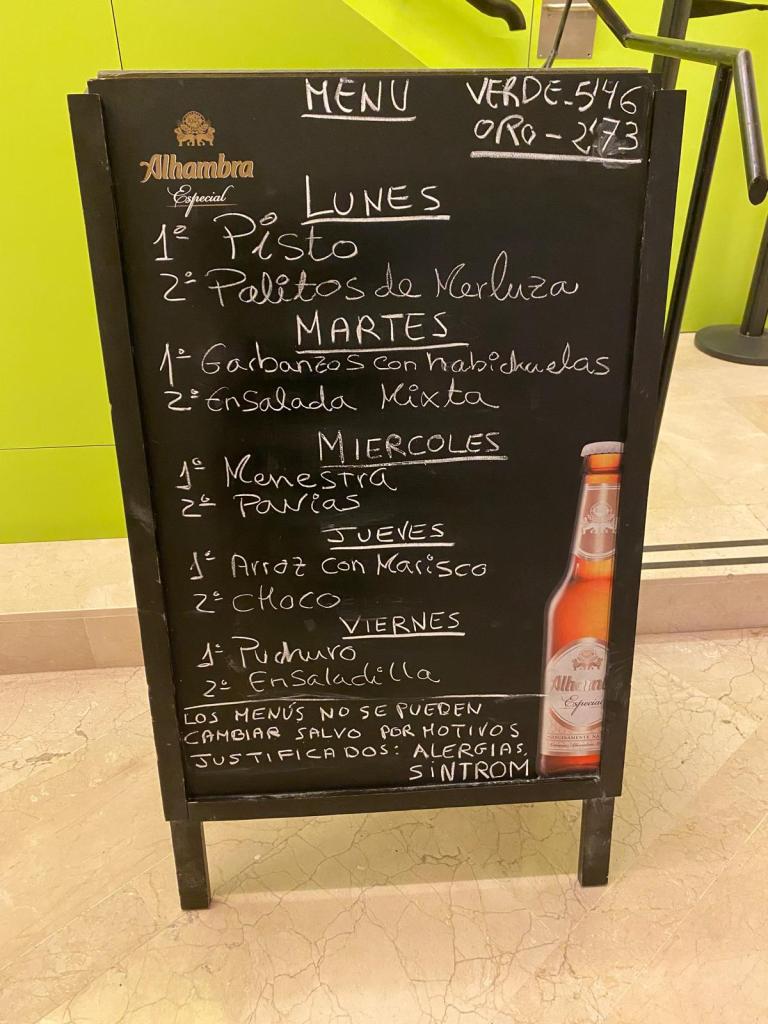 MENU
VERDE-5'46
ORO-2'73
Alhambra
Especial
LUNES
1º Pisto
2º Palitos de Merluza
MARTES
1º Garbanzos con habichuelas
2º Ensalada Mixta
MIERCOLES
1º Menestra
2º Pavias
JUEVES
1º Arroz con Marisco
2º CHOCO
VIERNES
1º Puchuro
2º Ensaladilla
LOS MENÚS NO SE PUEDEN
CAMBIAR SALVO POR MOTIVOS
JUSTIFICADOS: ALERGIAS,
SiNTROM
Alhambra
Especial